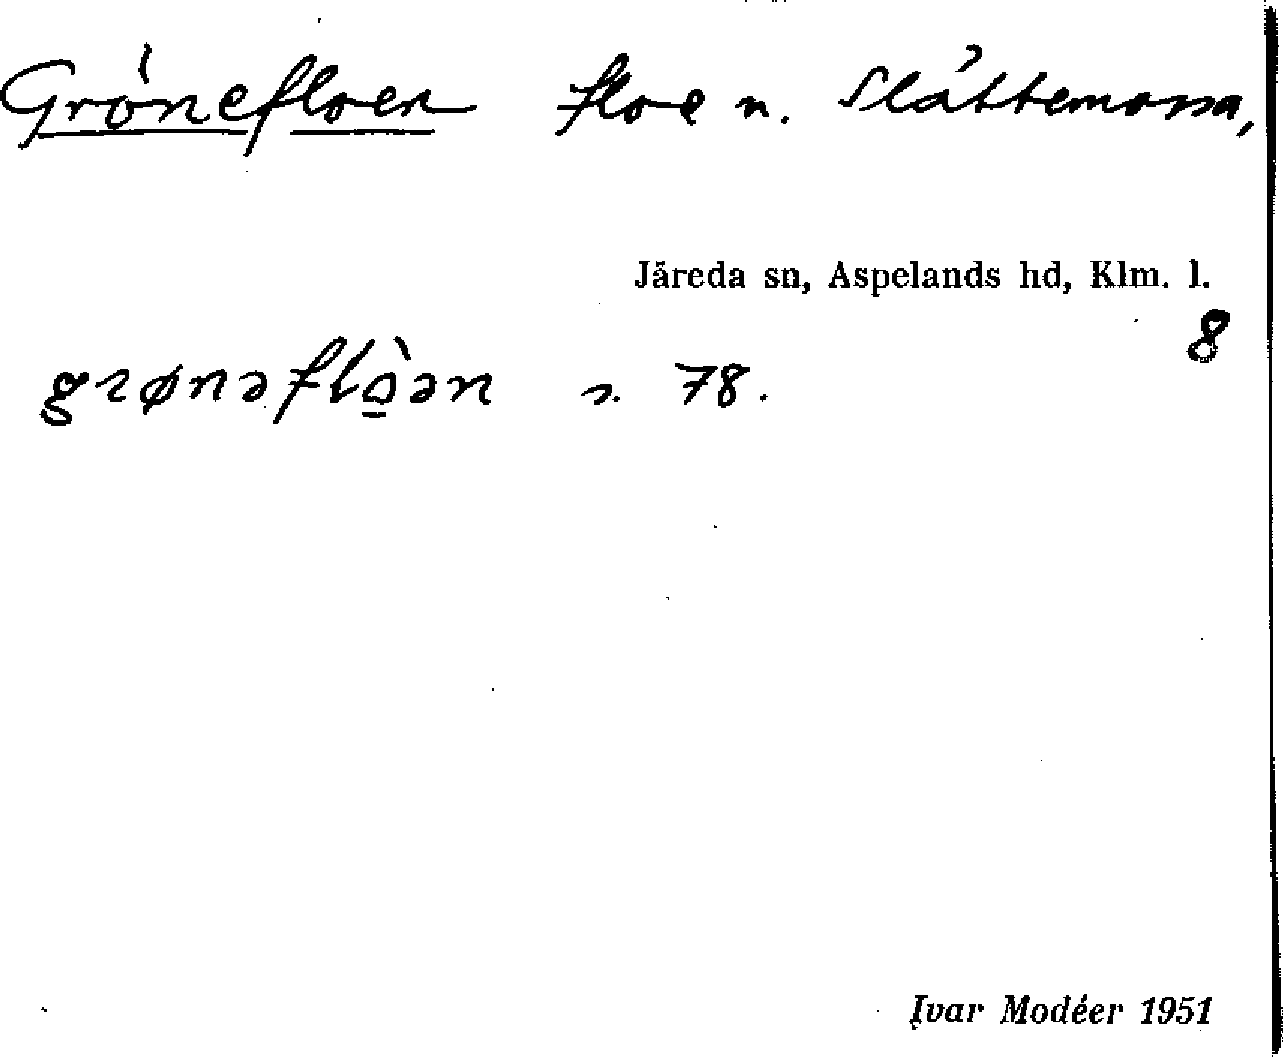 Grönefloen floe n. Slåttemossa,
Järeda sn, Aspelands hd, Klm. l.
8
grønəflò̱ən s. 78.
Ivar Modéer 1951